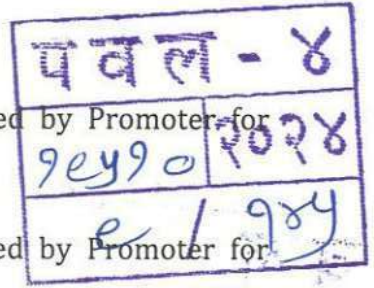 पवल - ४
ed by Promoter for
१९५१० २०२४
९ / १४५
ed by Promoter for